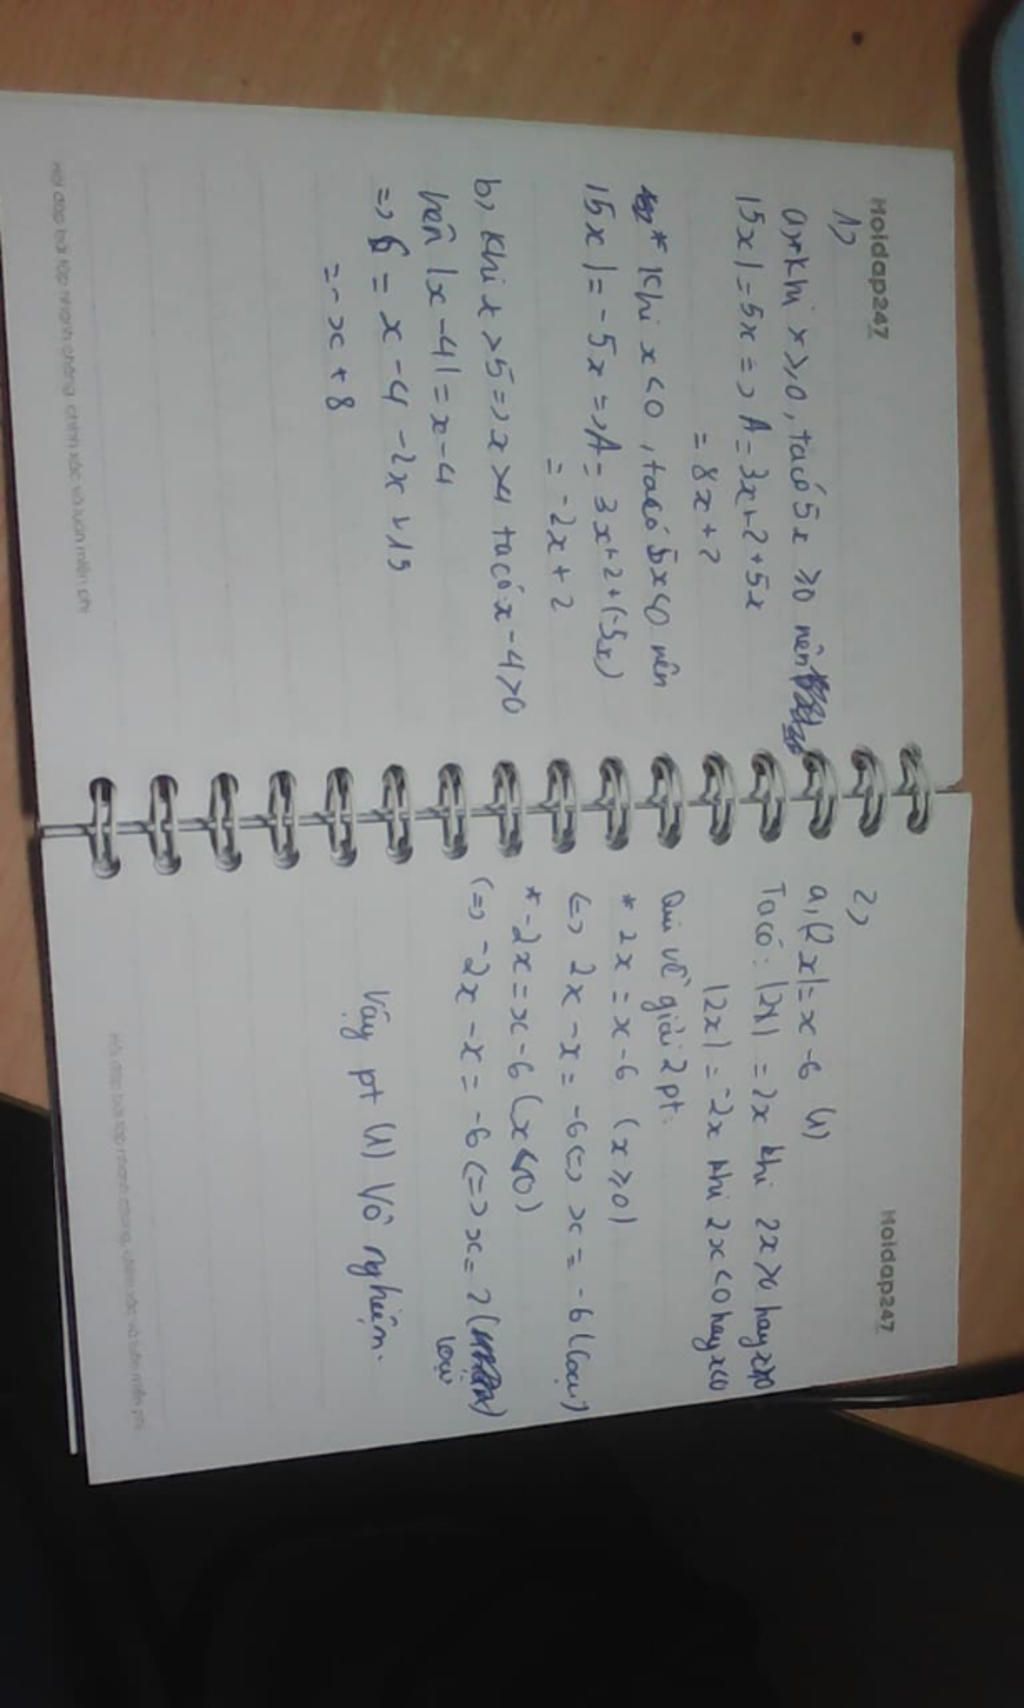 HoIdap247
1)
a, * Khi x ≥ 0, ta có 5x ≥ 0 nên
|5x| = 5x => A = 3x + 2 + 5x
= 8x + 2
* Khi x < 0, ta có 5x < 0 nên
|5x| = -5x => A = 3x + 2 + (-5x)
= -2x + 2
b, Khi x > 5 => x > 4 ta có x - 4 > 0
nên |x - 4| = x - 4
=> = x - 4 - 2x +
= -x + 8
Hỏi đáp bài tập nhanh chóng, chính xác và luôn miễn phí
HoIdap247
2)
a, |2x| = x - 6 (1)
Ta có: |2x| = 2x khi 2x ≥ 0 hay x ≥ 0
|2x| = -2x khi 2x < 0 hay x < 0
Qui về giải 2 pt:
* 2x = x - 6 (x ≥ 0)
<=> 2x - x = -6 <=> x = -6 (loại)
* -2x = x - 6 (x < 0)
<=> -2x - x = -6 <=> x = 2 (
loại
Vậy pt (1) vô nghiệm.
Hỏi đáp bài tập nhanh chóng, chính xác và luôn miễn phí